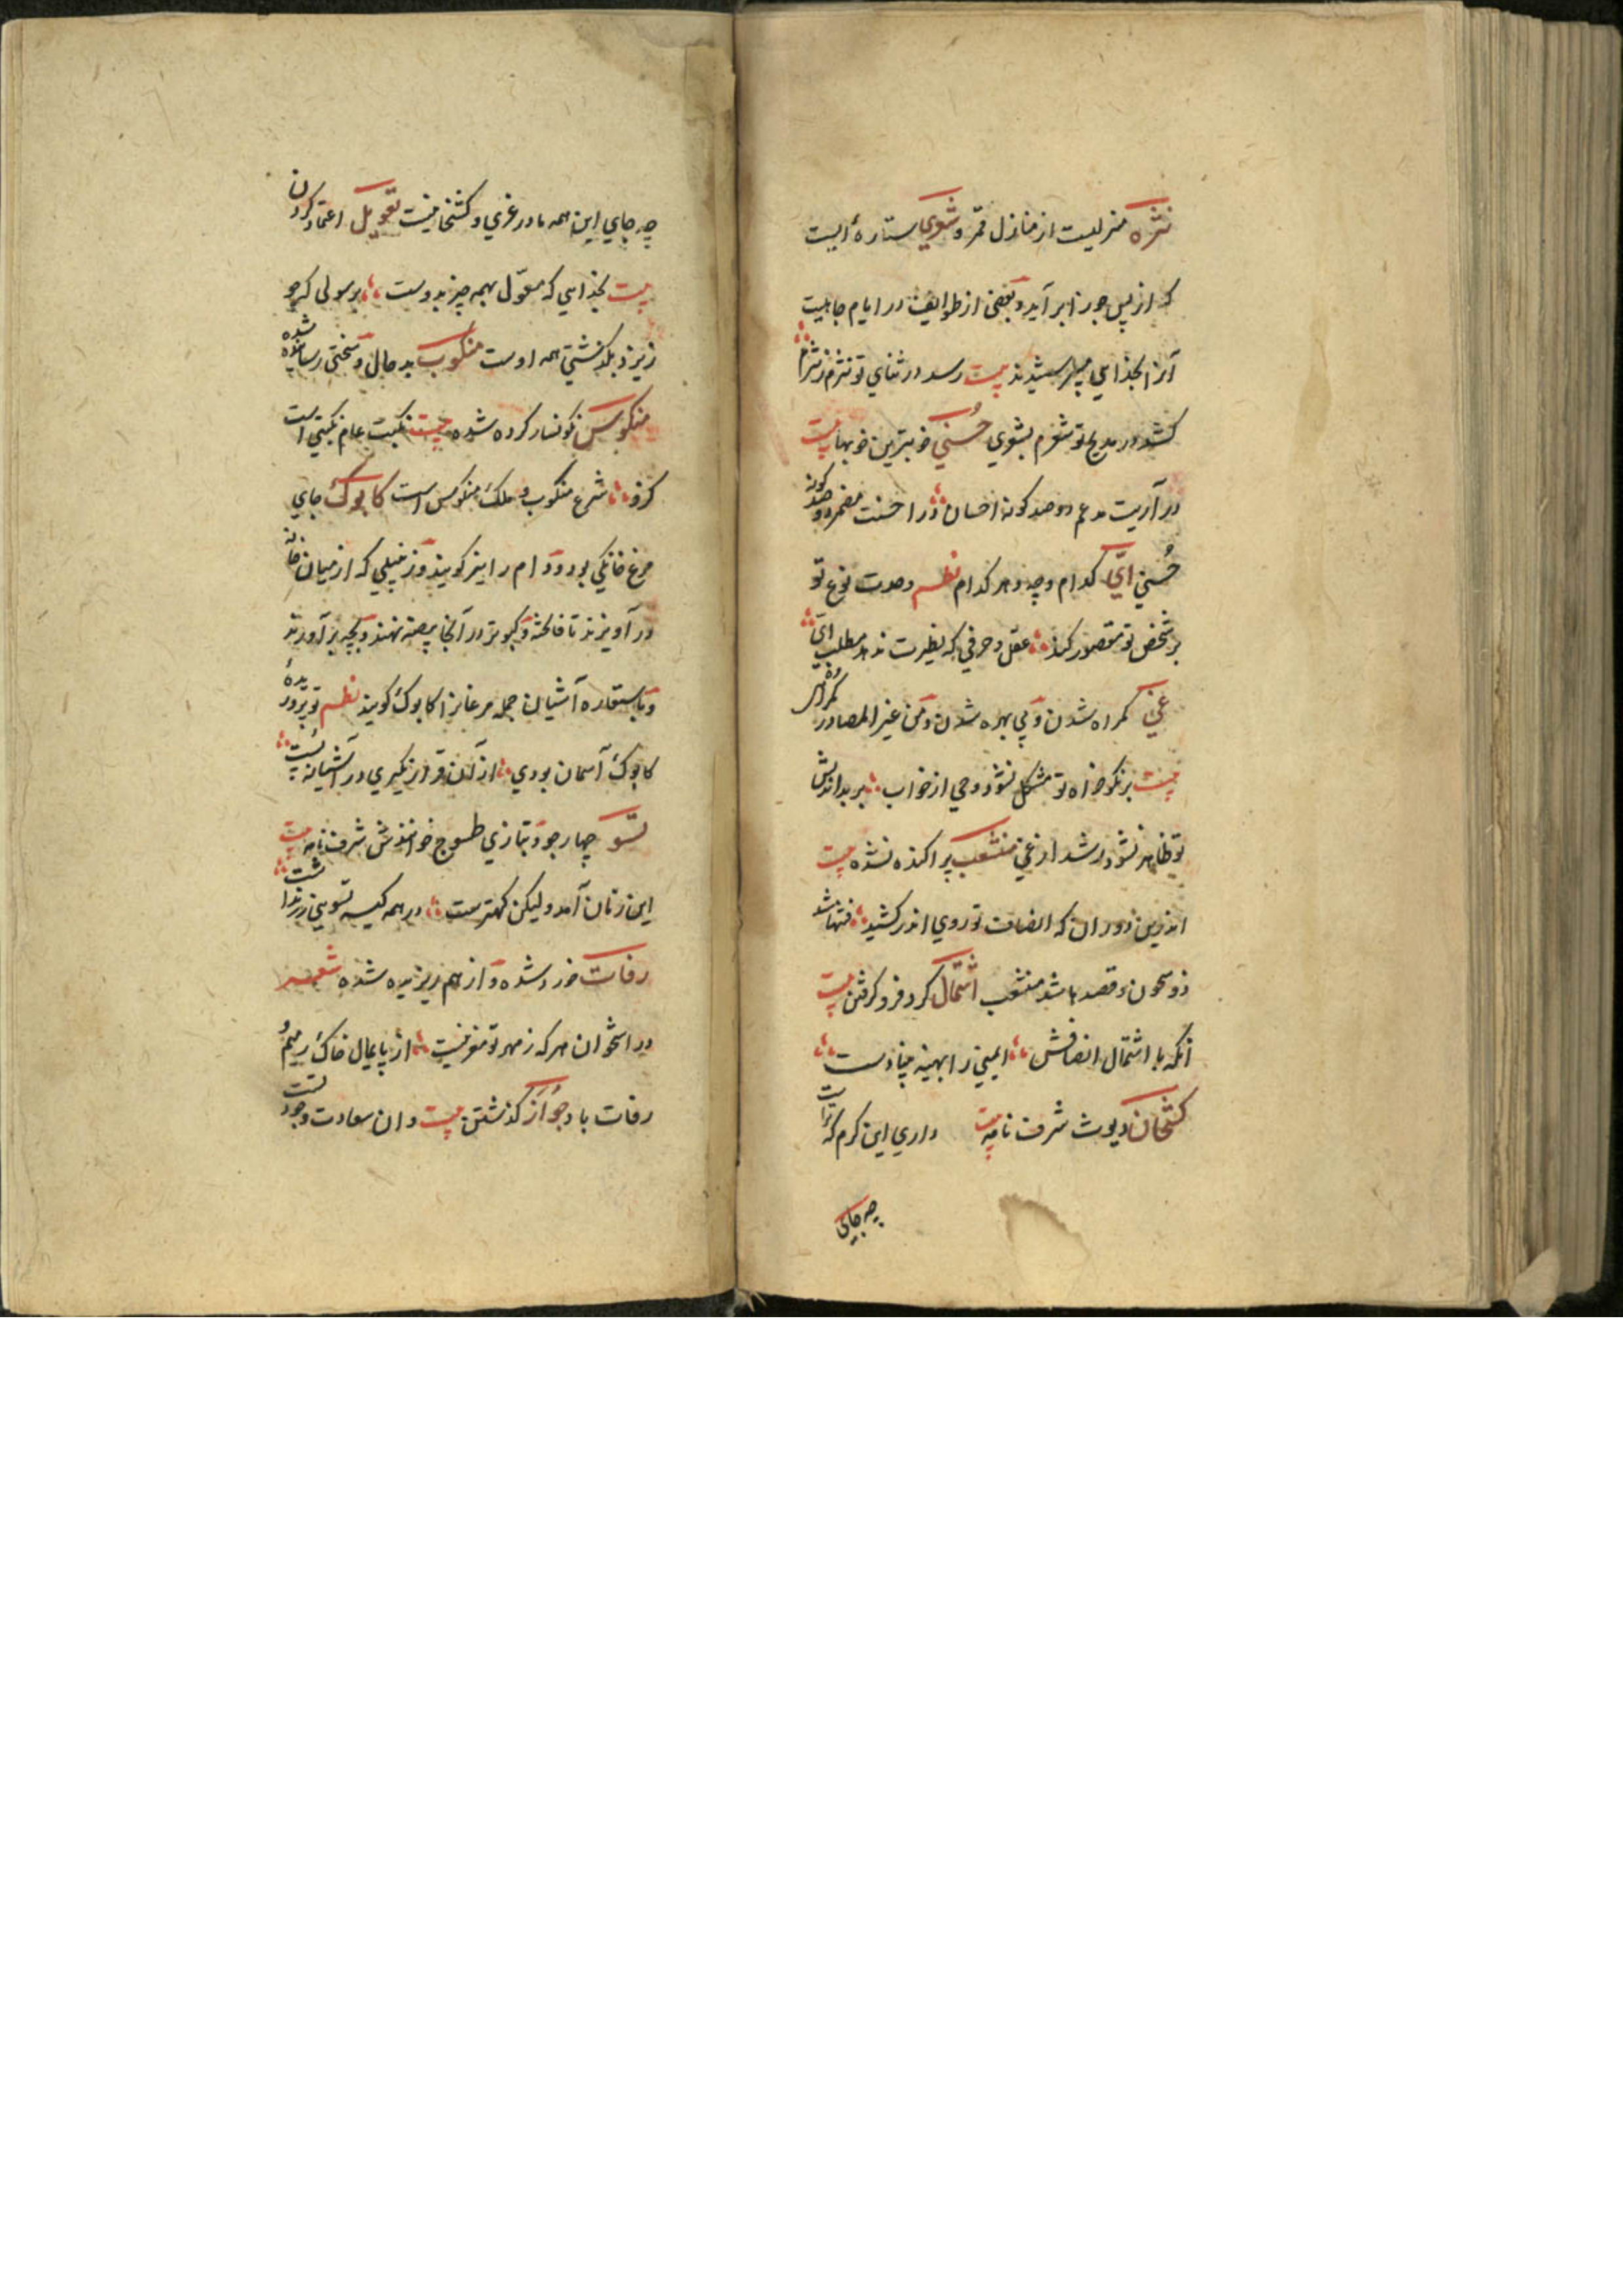 نثره منزلیست از منازل قمر و شعری ستاره ایست
که از پس جوزا برآید و بعضی از طوایف در ایام جاهلیت
آنرا بخدایی میپرستیدند بیت رسد در ثنای تو نثرم ز نثره
کشد در مدیح تو شعرم بشعری حُسنی خوبترین خوبیها بیت
در آریت مدغم دو صد کونه احسان در احسنت مضمر دو صد کونه
حُسنی ایّ کدام و چه و هر کدام نظم وحدت نوع تو
بر شخص تو مقصور کند عقل و حرفی که نظیرت ندهد مطلب ایّ
غی کمراه شدن و بی بهره شدن و من غیر المصادر کمراهی
بیت بر نکو خواه تو مشکل نشود وحی از خواب بر بداندیش
تو ظاهر نشود رشد از غی منشعب پراکنده شده بیت
اندرین دوران که انصاف تو روی اندر کشید فتنها شد
ذو شجون و قصد باشد منشعب اشتمال کرد فرو کرفتن بیت
آنکه با اشتمال انصافش ایمنی را بهینه بنیادست
کشخان دیوث شرف نامه بیت داری این کرم که تراست
چه جای
چه جای این همه مادر غری و کشخانیست تعویل اعتماد کردن
بیت بخدایی که معوّل بهمه چیز بدوست برسولی که چو
ایزد بکذشتی همه اوست منکوب بد حال و سختی رسانیده شده
منکوس نکونسار کرده شده بیت نکبت عام نکبتی است
کزو شرع منکوب و ملک منکوس است کابوک جای
مرغ خانکی بود و دام را نیز کویند و زنبیلی که از میان خانه
در آویزند تا فاخته و کبوتر در آنجا بیضه نهند و بچه برآورند
و باستعاره آشیان جمله مرغانرا کابوک کویند نظم تو پرورده
کابوک آسمان بودی از آن قرار نکیری در آشیانه پست
تسو چهار جو و بتازی طسوج خوانندش شرف نامه بیت
این زنان آمد و لیکن کهترست در همه کیسه تسویی زر نداشت
رفات خورد شده و از هم ریزیده شده شعر
در استخوان هر که ز مهر تو مغز نیست از پایمال خاک رمیم و
رفات باد جواز کذشتن بیت و ان سعادت وجود تست